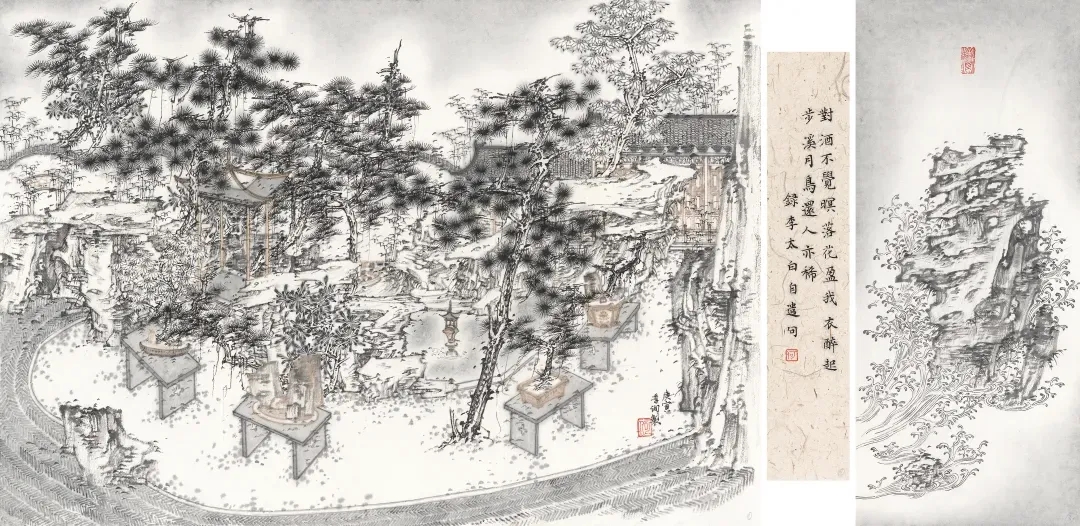 對酒不覺暝落花盈我衣醉起
步溪月鳥還人亦稀
錄李太白自遣句
庚寅